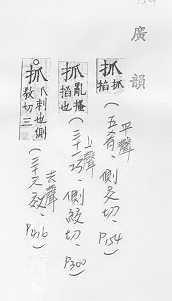 廣韻
抓 抓掐（平聲 五肴、側交切、P154）
抓 亂搔掐也（上聲 三十一巧、側絞切、P300）
抓 爪刺也側教切三（去聲 三十六效、P416）